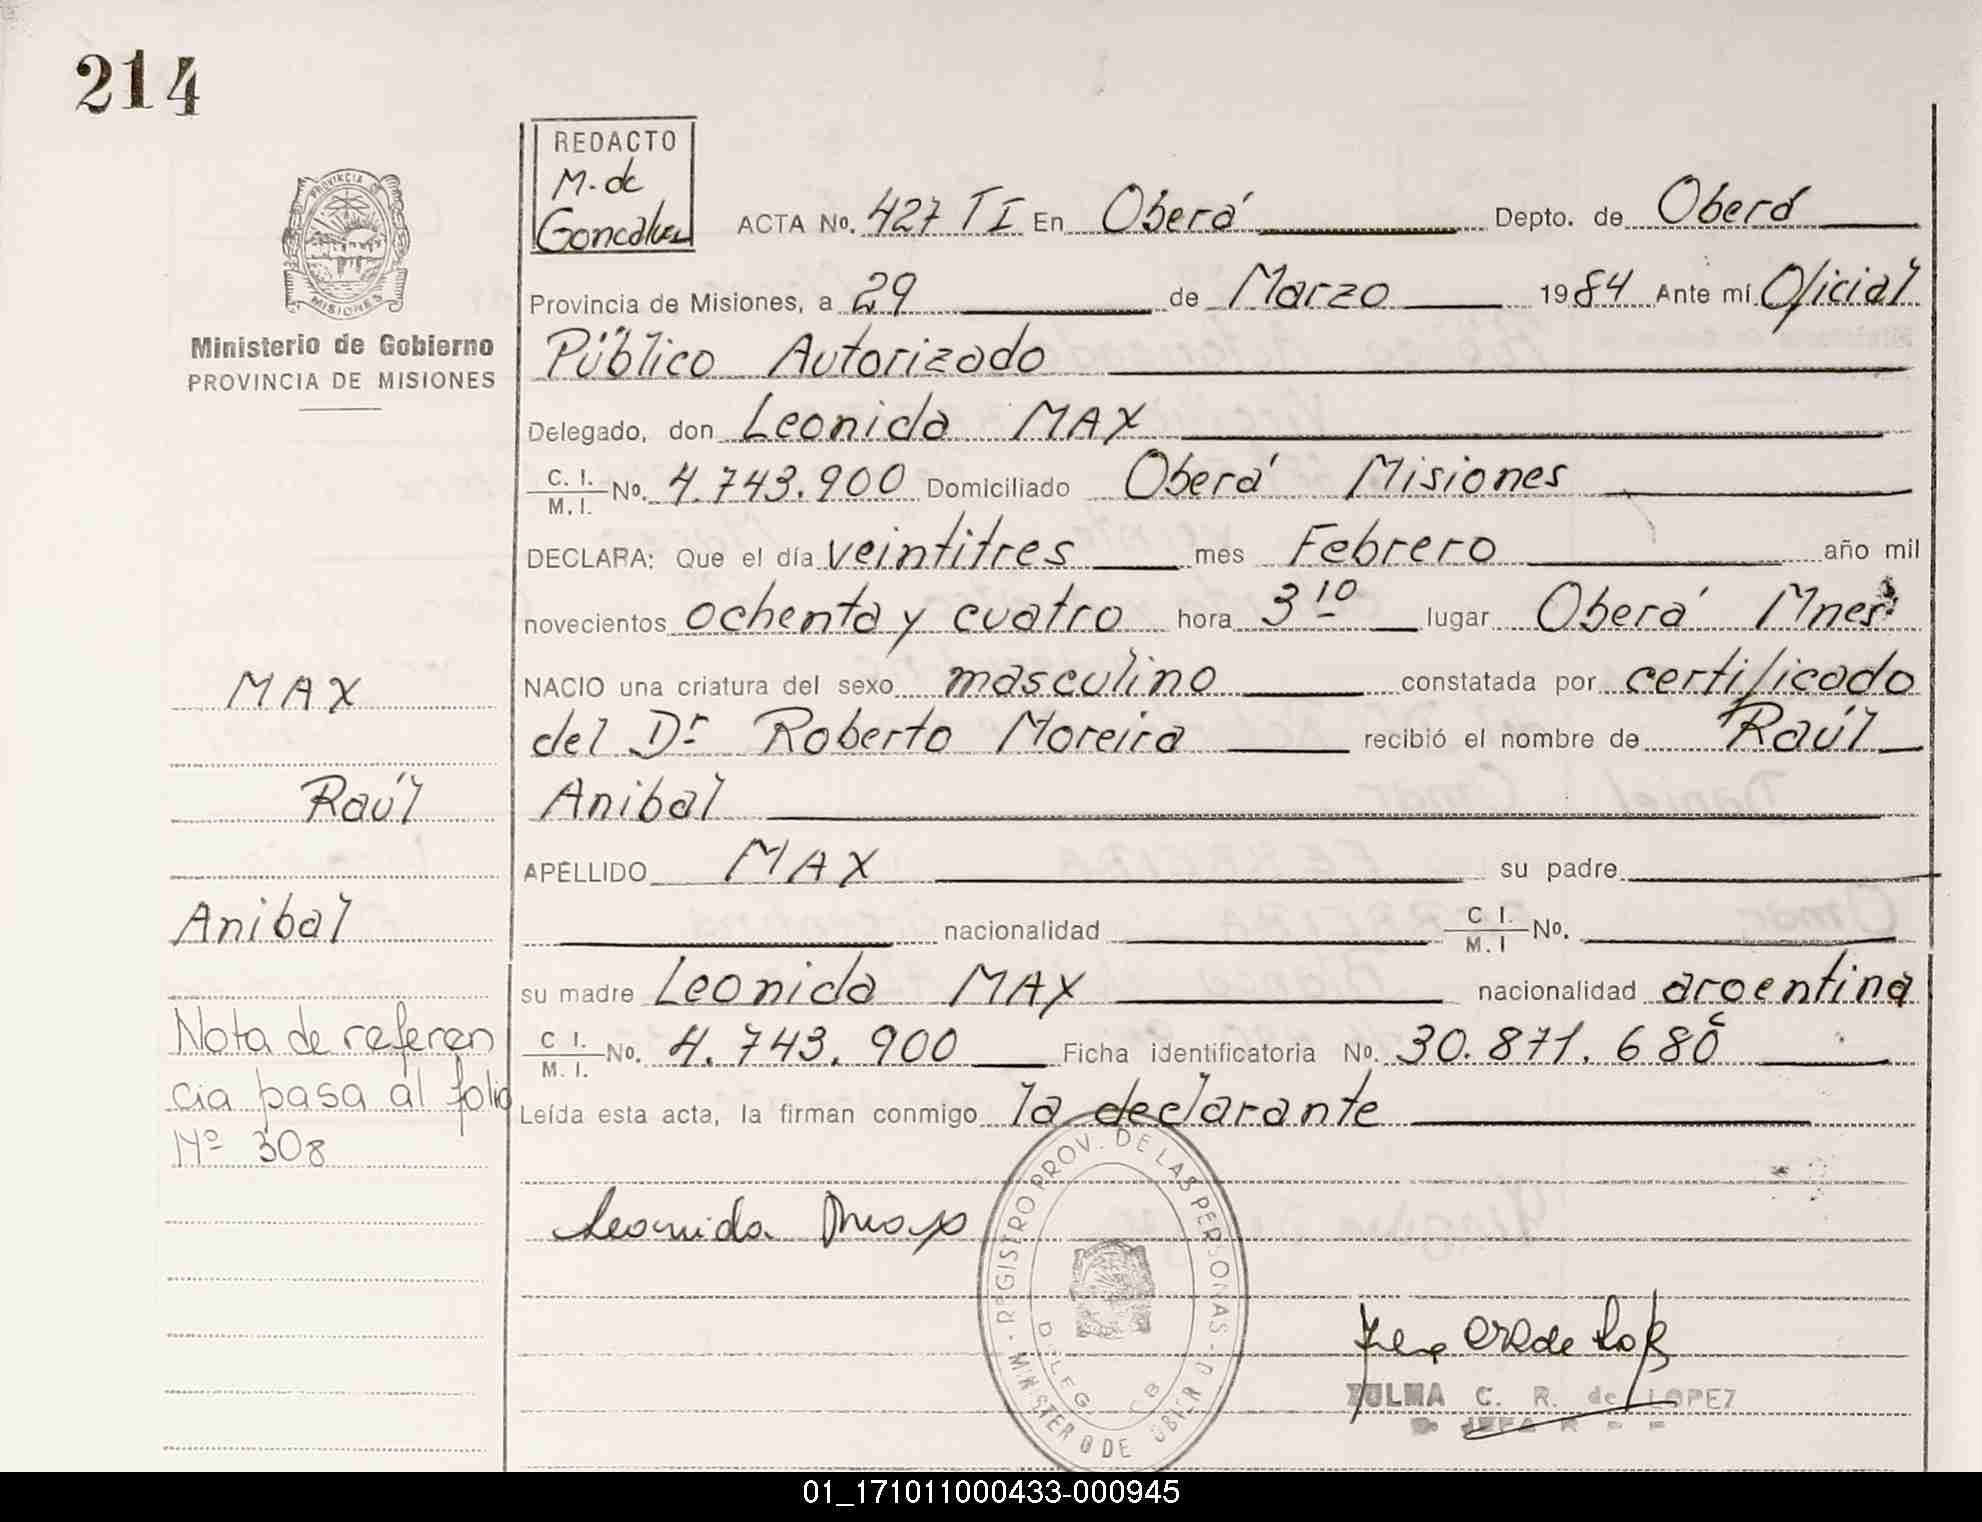 214
REDACTO
M. de
Goncalvez
PROVINCIA DE
MISIONES
Ministerio de Gobierno
PROVINCIA DE MISIONES
ACTA No. 427 TI En Oberá Depto. de Oberá
Provincia de Misiones, a 29 de Marzo 1984 Ante mí Oficial
Público Autorizado
Delegado, don Leonida MAX
C. I. / M. I. No. 4.743.900 Domiciliado Oberá Misiones
DECLARA: Que el día veintitres mes Febrero año mil
novecientos ochenta y cuatro hora 3 10 lugar Oberá Mnes
NACIO una criatura del sexo masculino constatada por certificado
del Dr Roberto Moreira recibió el nombre de Raúl
Anibal
APELLIDO MAX su padre
nacionalidad C. I. / M. I No.
su madre Leonida MAX nacionalidad argentina
C I. / M. I. No. 4.743.900 Ficha identificatoria No. 30.871.680
Leída esta acta, la firman conmigo la declarante
MAX
Raúl
Anibal
Nota de referen
cia pasa al folio
Nº 308
Leonida Max
REGISTRO PROV. DE LAS PERSONAS
ZULMA C. R. de LOPEZ
01_171011000433-000945